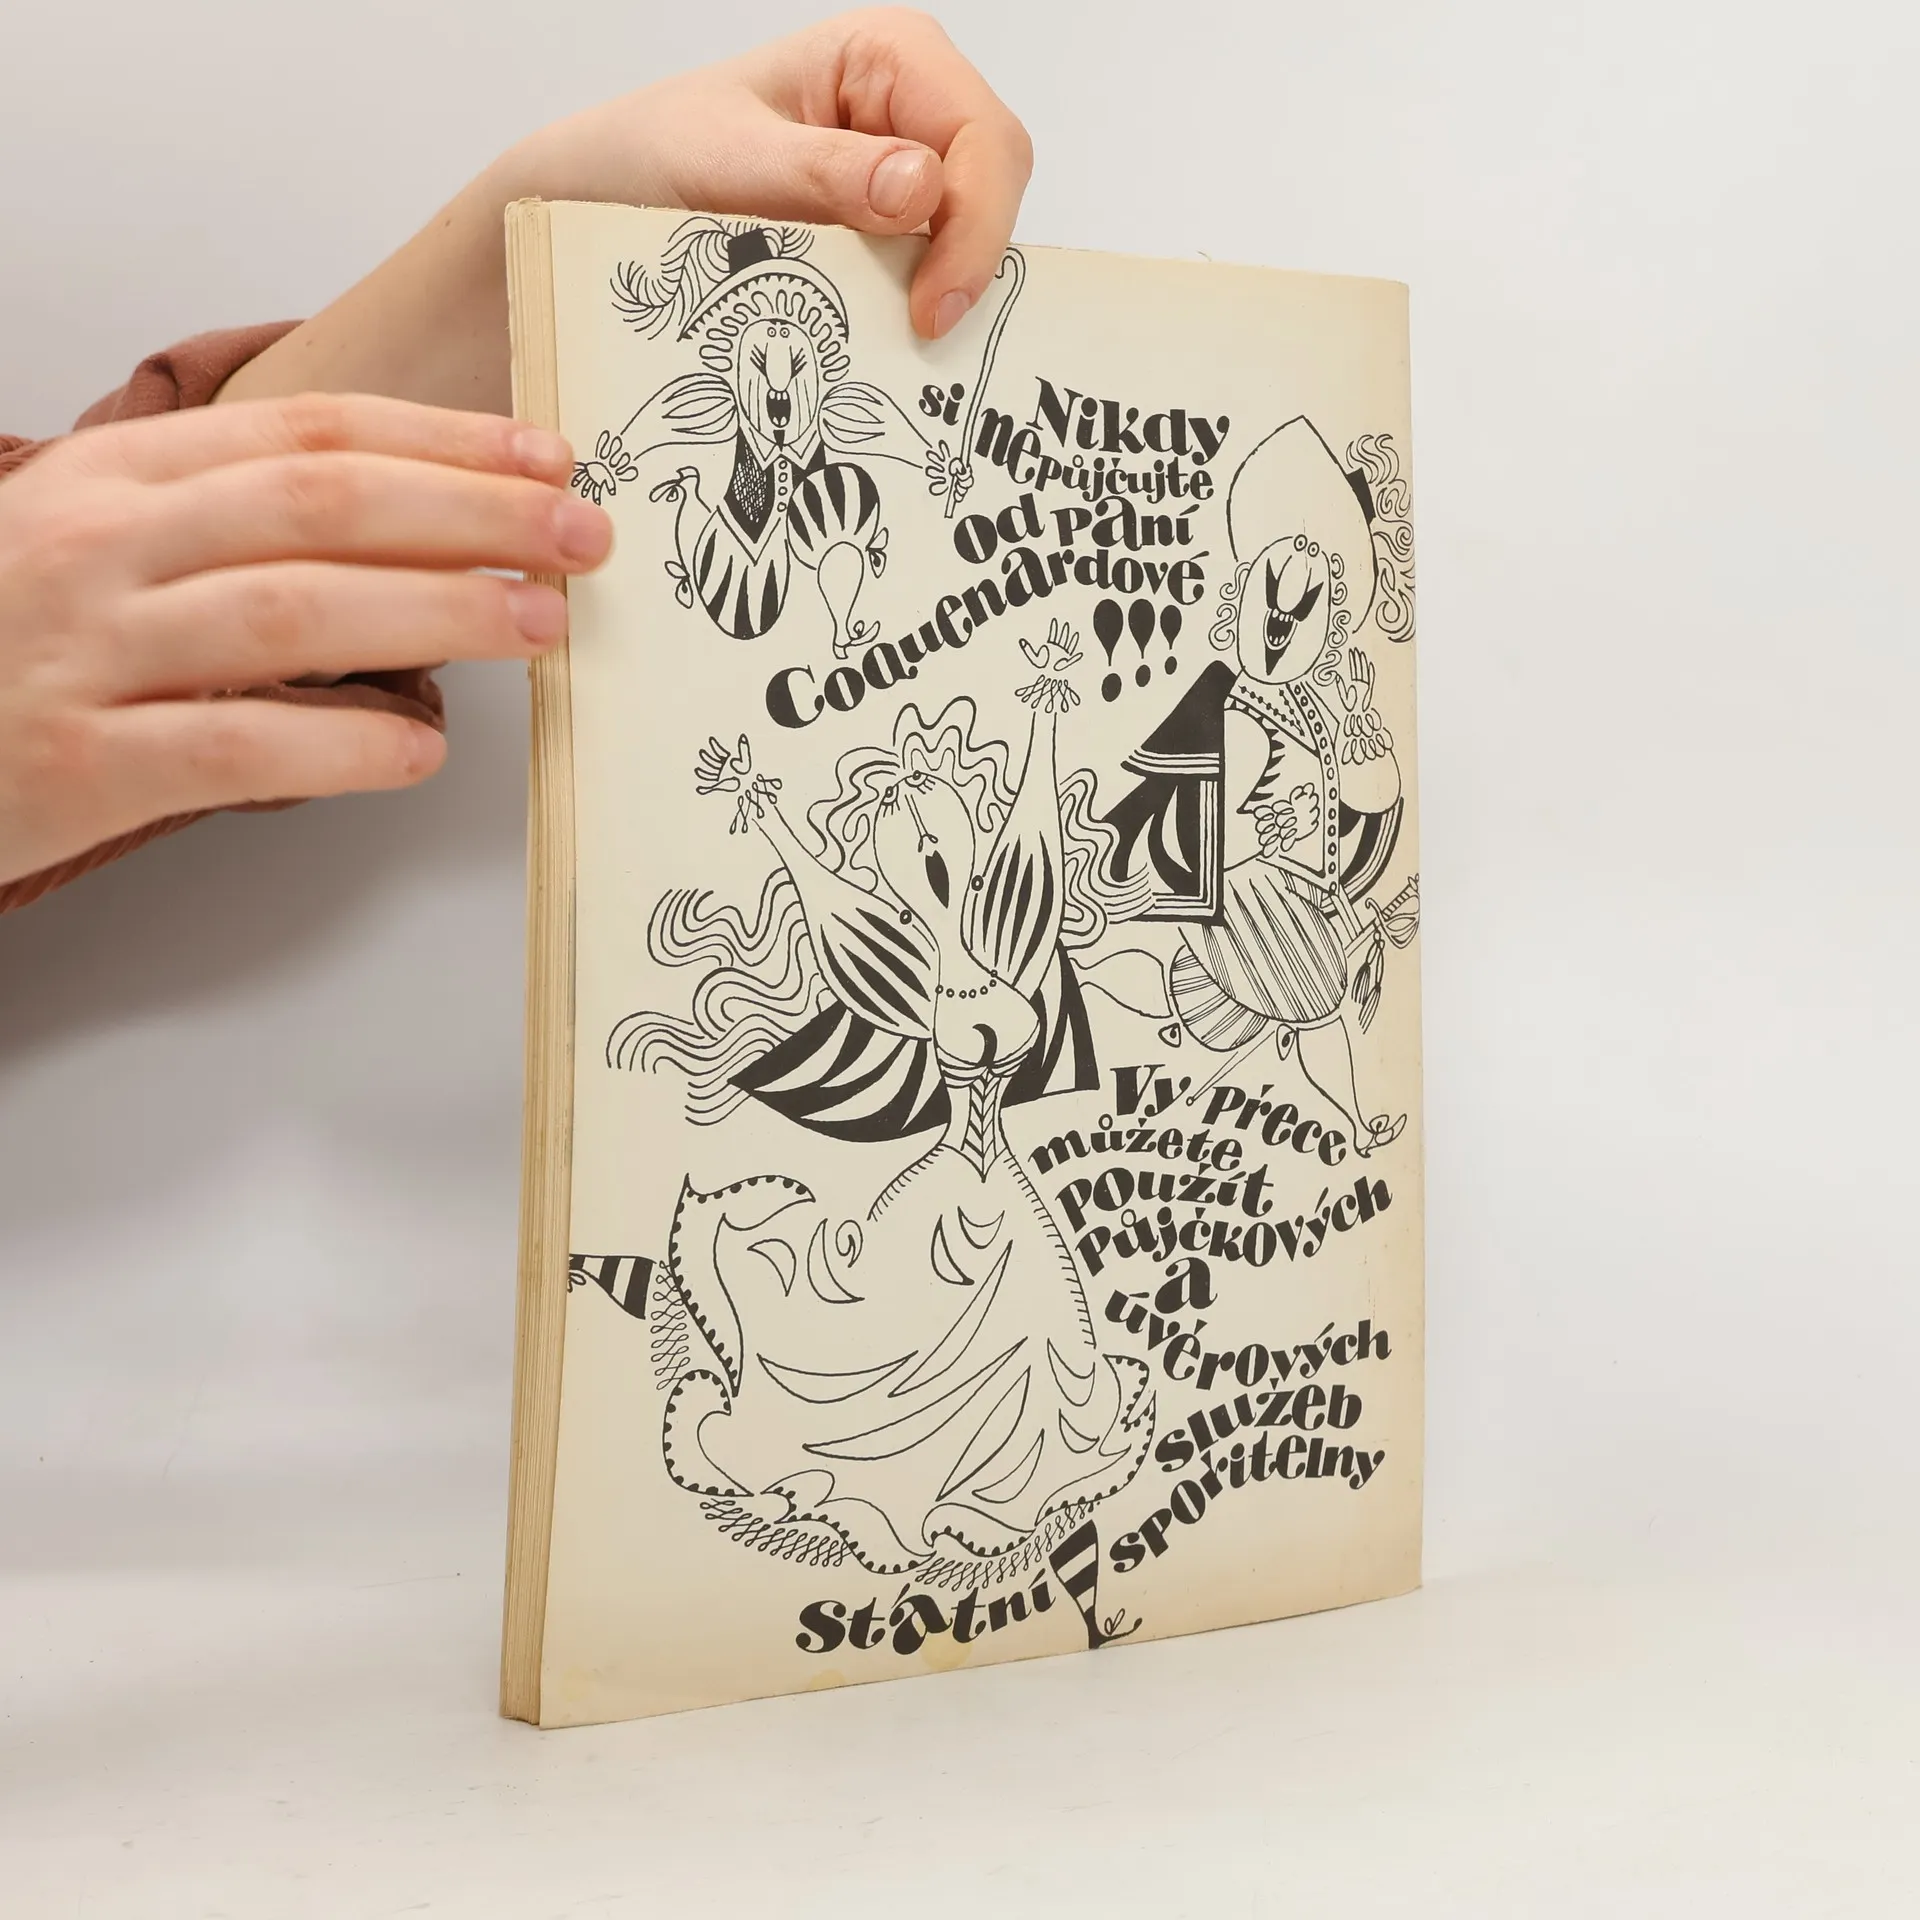 Nikdy
si nepůjčujte
od paní
Coquenardové
!!!
Vy přece
můžete
použít
půjčkových
a
úvěrových
služeb
spořitelny
Státní